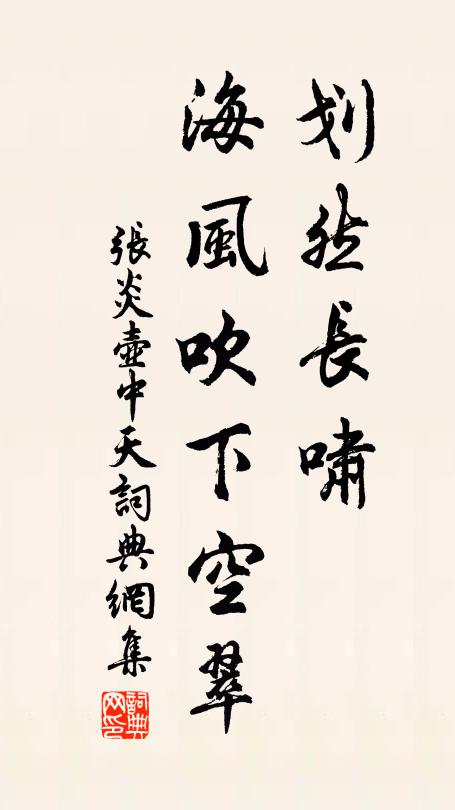 划然長嘯
海風吹下空翠
張炎壺中天詞典網集
詞典
网印